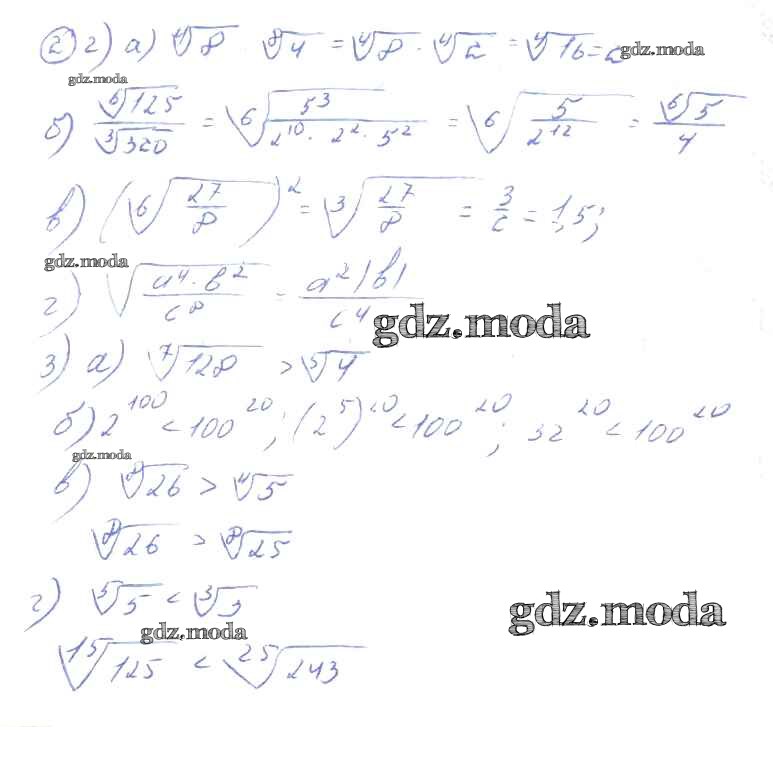 ② 2) а) ⁴√8 · ⁸√4 = ⁴√8 · ⁴√2 = ⁴√16 = 2
gdz.moda
gdz.moda
б) ⁶√125 / ³√320 = ⁶√(5³ / (2¹⁰ · 2² · 5²)) = ⁶√(5 / 2¹²) = ⁶√5 / 4
в) (⁶√(27/8))² = ³√(27/8) = 3/2 = 1,5;
gdz.moda
г) √(a⁴ · b² / c⁸) = a²|b| / c⁴
gdz.moda
3) а) ⁷√128 > ³√4
б) 2¹⁰⁰ < 100²⁰; (2⁵)²⁰ < 100²⁰; 32²⁰ < 100²⁰
gdz.moda
в) ⁸√26 > ⁴√5
⁸√26 > ⁸√25
г) ⁵√5 < ³√3
gdz.moda
gdz.moda
¹⁵√125 < ²⁵√243